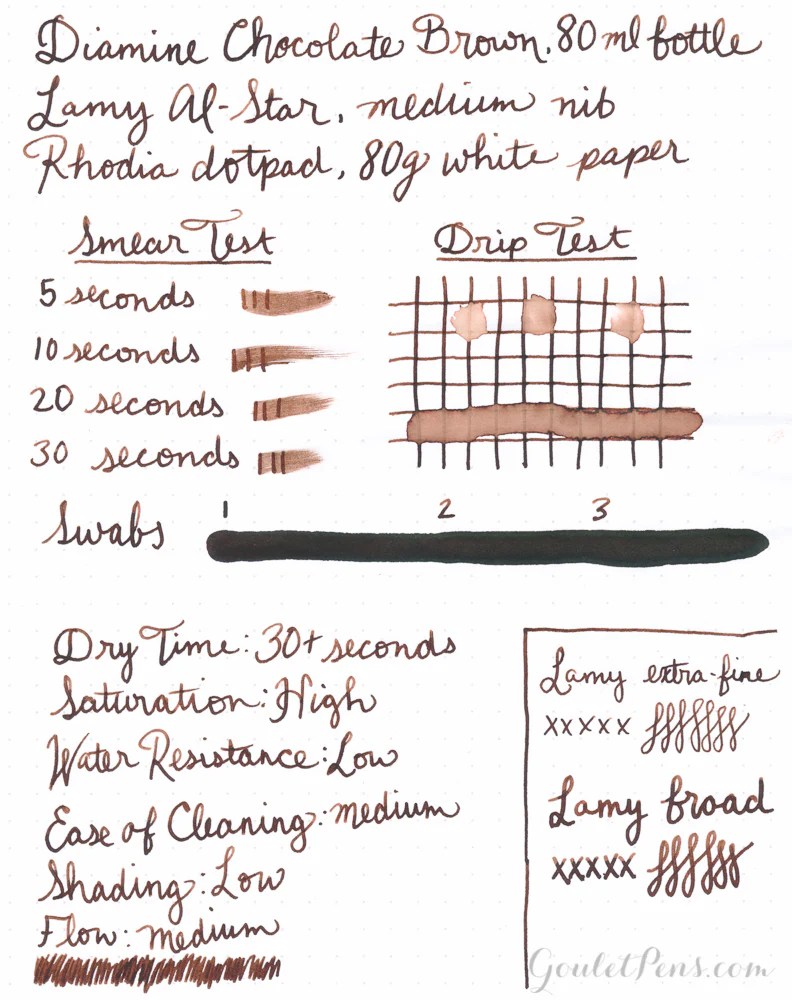 Diamine Chocolate Brown, 80 ml bottle
Lamy Al-Star, medium nib
Rhodia dotpad, 80g white paper
Smear Test
5 seconds
10 seconds
20 seconds
30 seconds
Drip Test
Swabs
1 2 3
Dry Time: 30+ seconds
Saturation: High
Water Resistance: Low
Ease of Cleaning: medium
Shading: Low
Flow: medium
Lamy extra-fine
xxxxx
Lamy broad
xxxxx
GouletPens.com